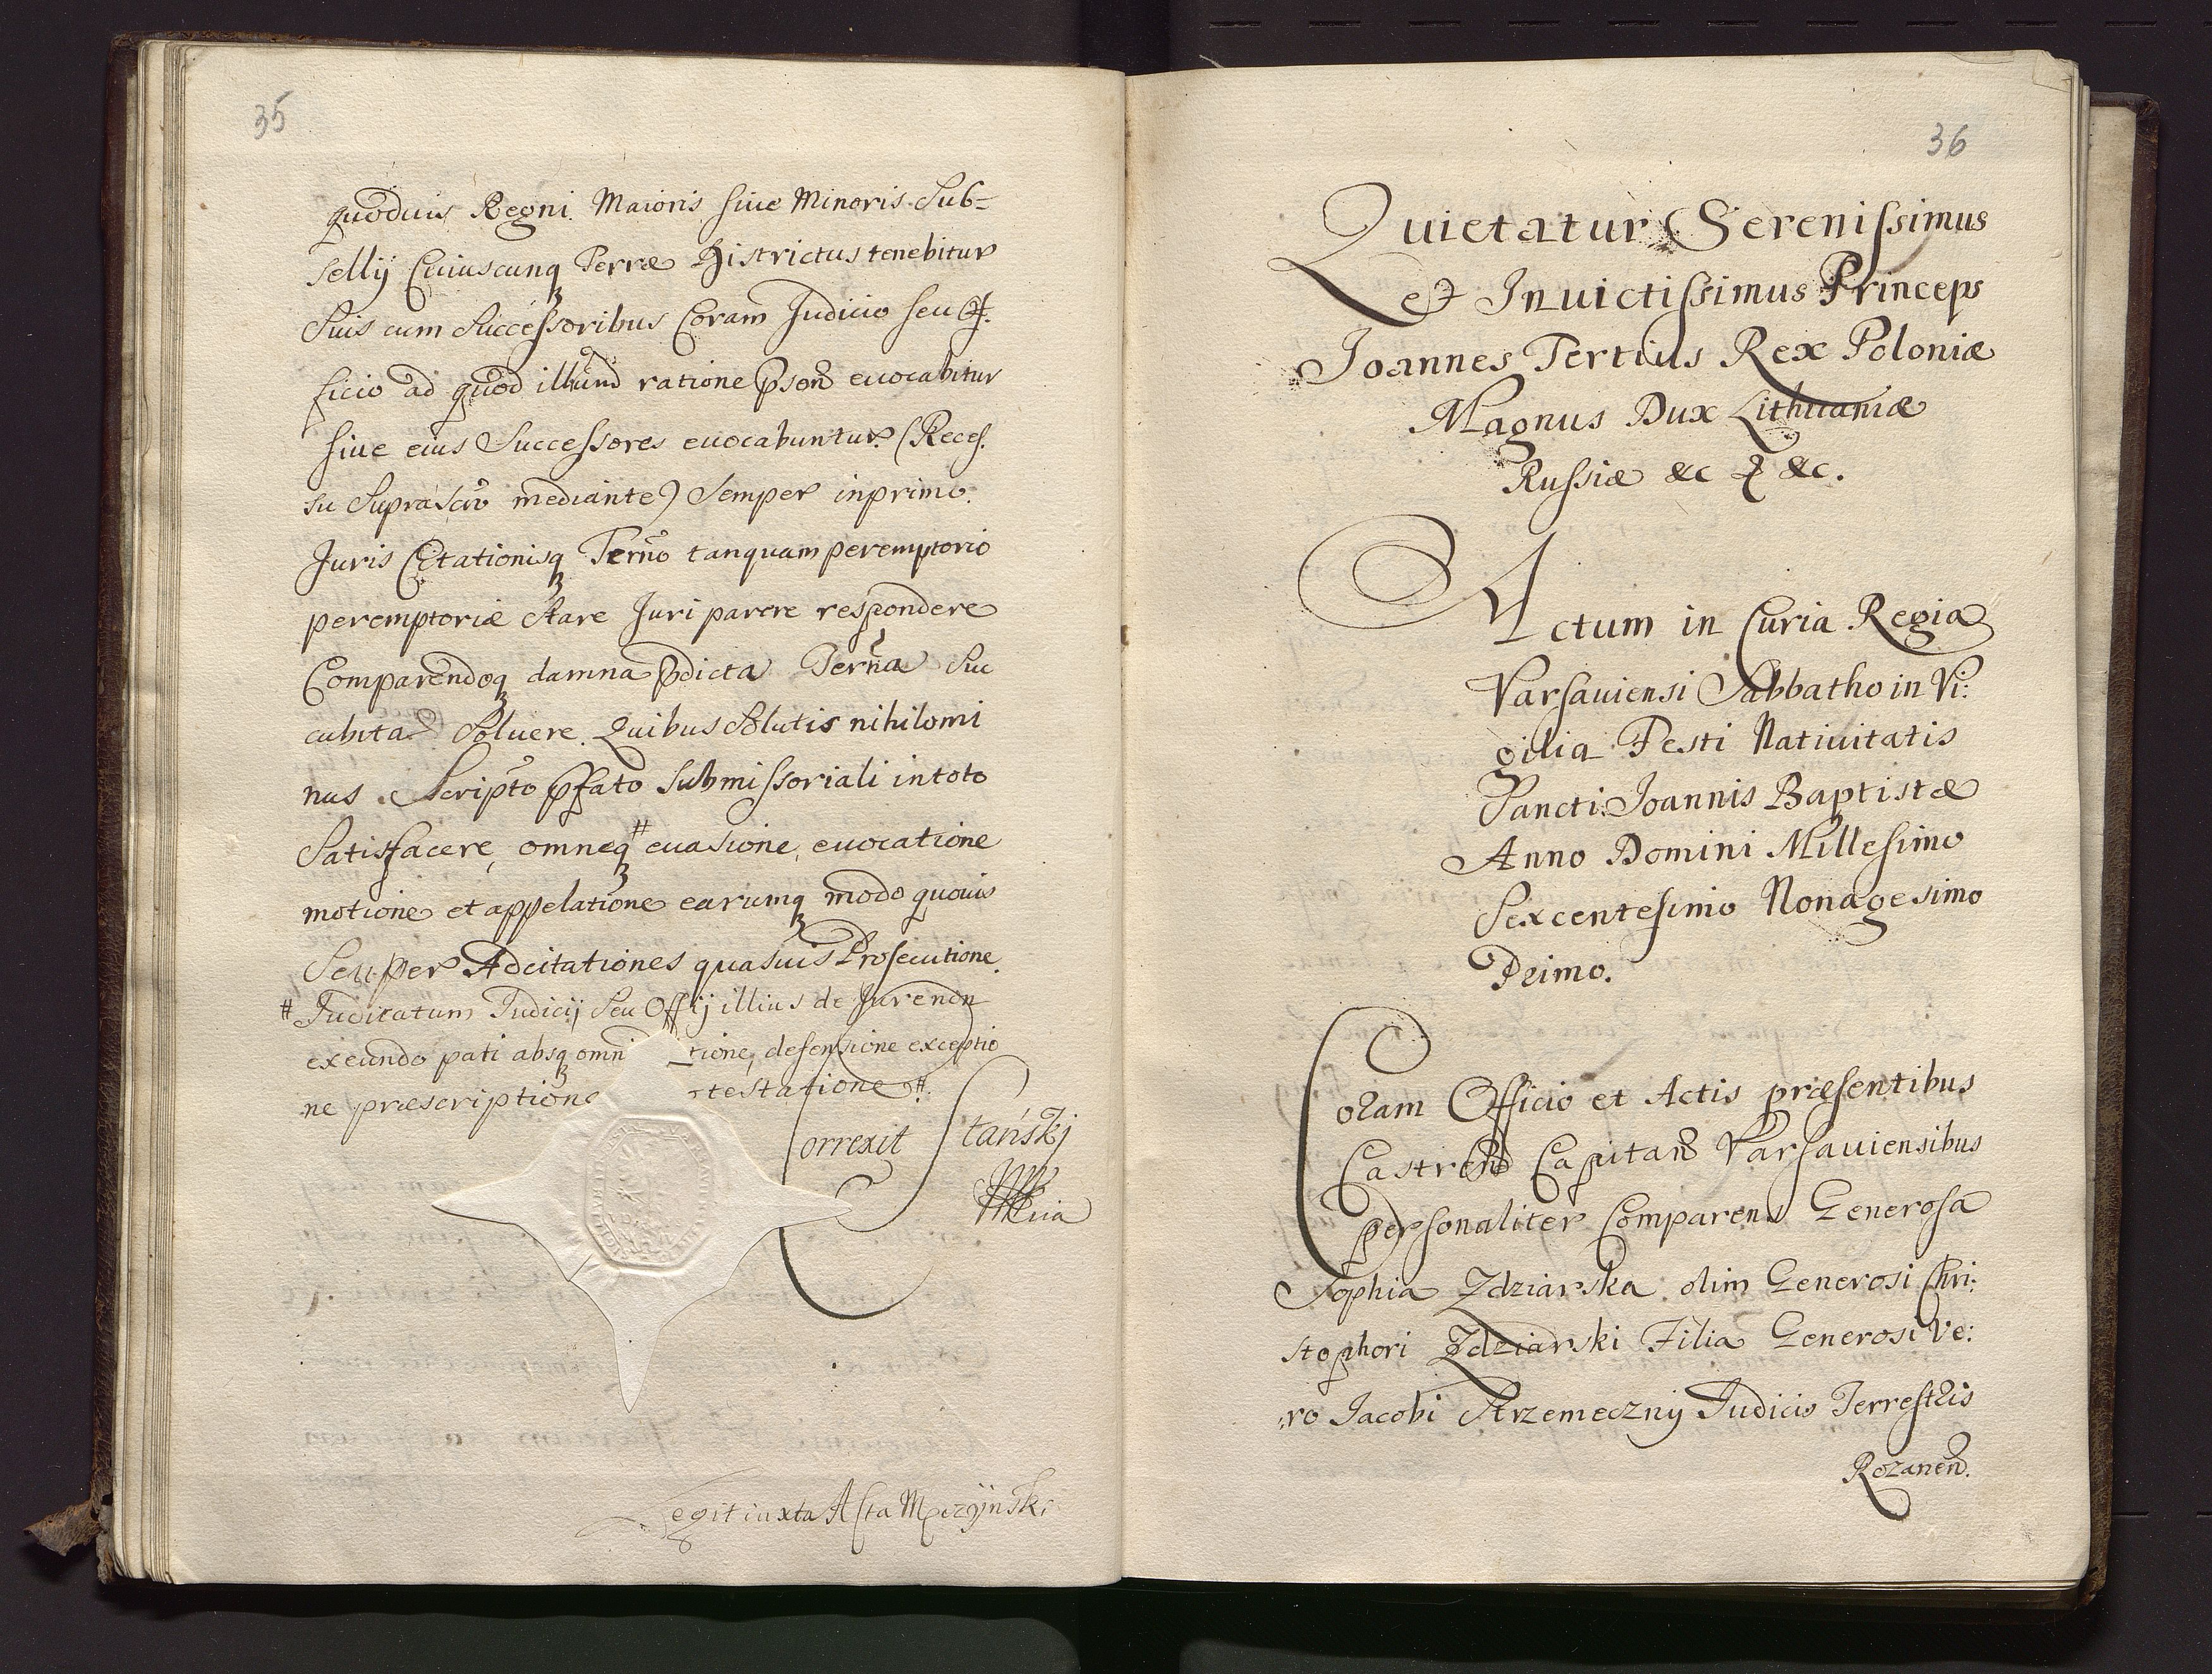 35
quoduis Regni Maioris siue Minoris Sub=
sellij Cuiuscunq3 Terræ Districtus tenebitur
Suis cum Successoribus Coram Judicio seu Of:
ficio ad quod illum ratione pson evocabitur
siue eius Successores euocabuntur (Reces:
su Suprascro mediante) Semper in primo
Juris Citationisq3 Termo tanquam peremptorio
peremptoriæ stare Juri parere respondere
Comparendoq3 damna pdicta Terna Suc
cubita Soluere. Quibus Solutis nihilomi
nus Scripto pfato Submissoriali in toto
Satisfacere, omneq3 # euasione euocatione
motione et appelatione earumq3 modo quouis
Semper Adcitationes quasuis Prosecutione.
# Judicatum Judicij Seu Offij illius de Jure non
exeundo pati absq3 omni tione, defensione exceptio
ne præscriptione testatione #.
Correxit Stański
Legit iuxta Acta Męczÿnski
36
Quietatur Serenissimus
et Inuictissimus Princeps
Joannes Tertius Rex Poloniæ
Magnus Dux Lithuaniæ
Russiæ &c & &c.
Actum in Curia Regia
Varsauiensi Sabbatho in Vi:
gilia Festi Natiuitatis
Sancti Joannis Baptistæ
Anno Domini Millesimo
Sexcentesimo Nonagesimo
Primo.
Coram Officio et Actis præsentibus
Castren Capitan Varsauiensibus
personaliter Comparens Generosa
Sophia Zdziarska olim Generosi Chri:
stophori Zdziarski Filia Generosi Ve:
ro Jacobi Strzemeczny Judicis Terrestris
Rozanen.